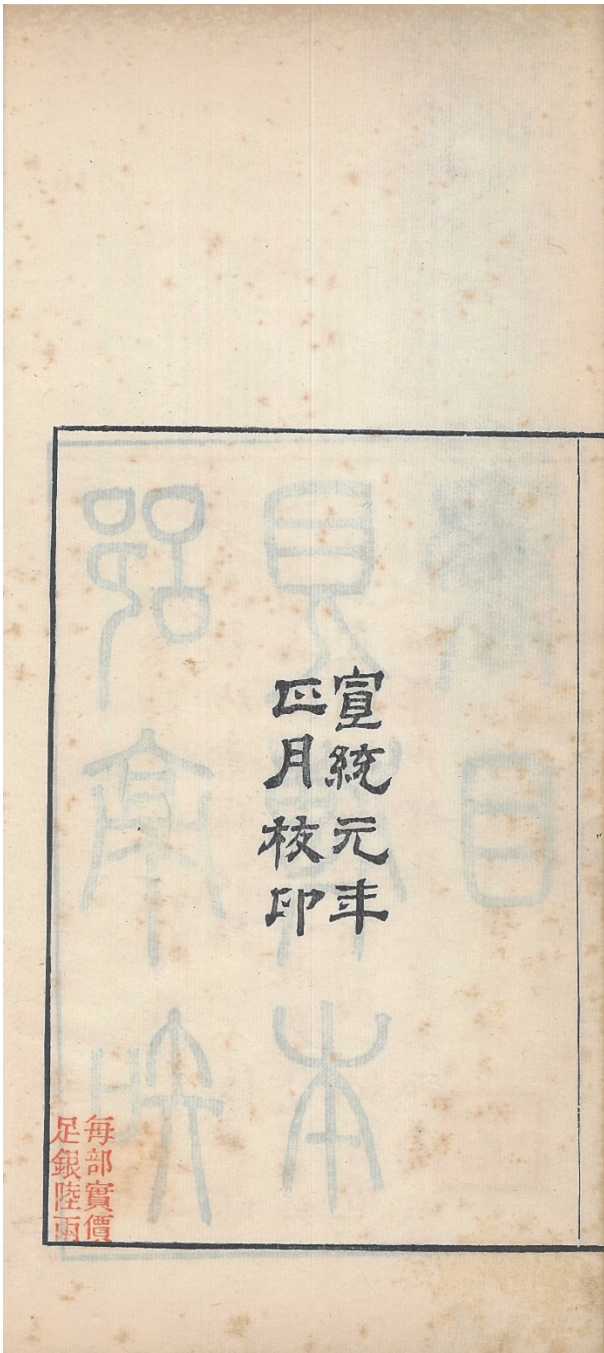 宣統元年
正月校印
每部實價
足銀陸兩